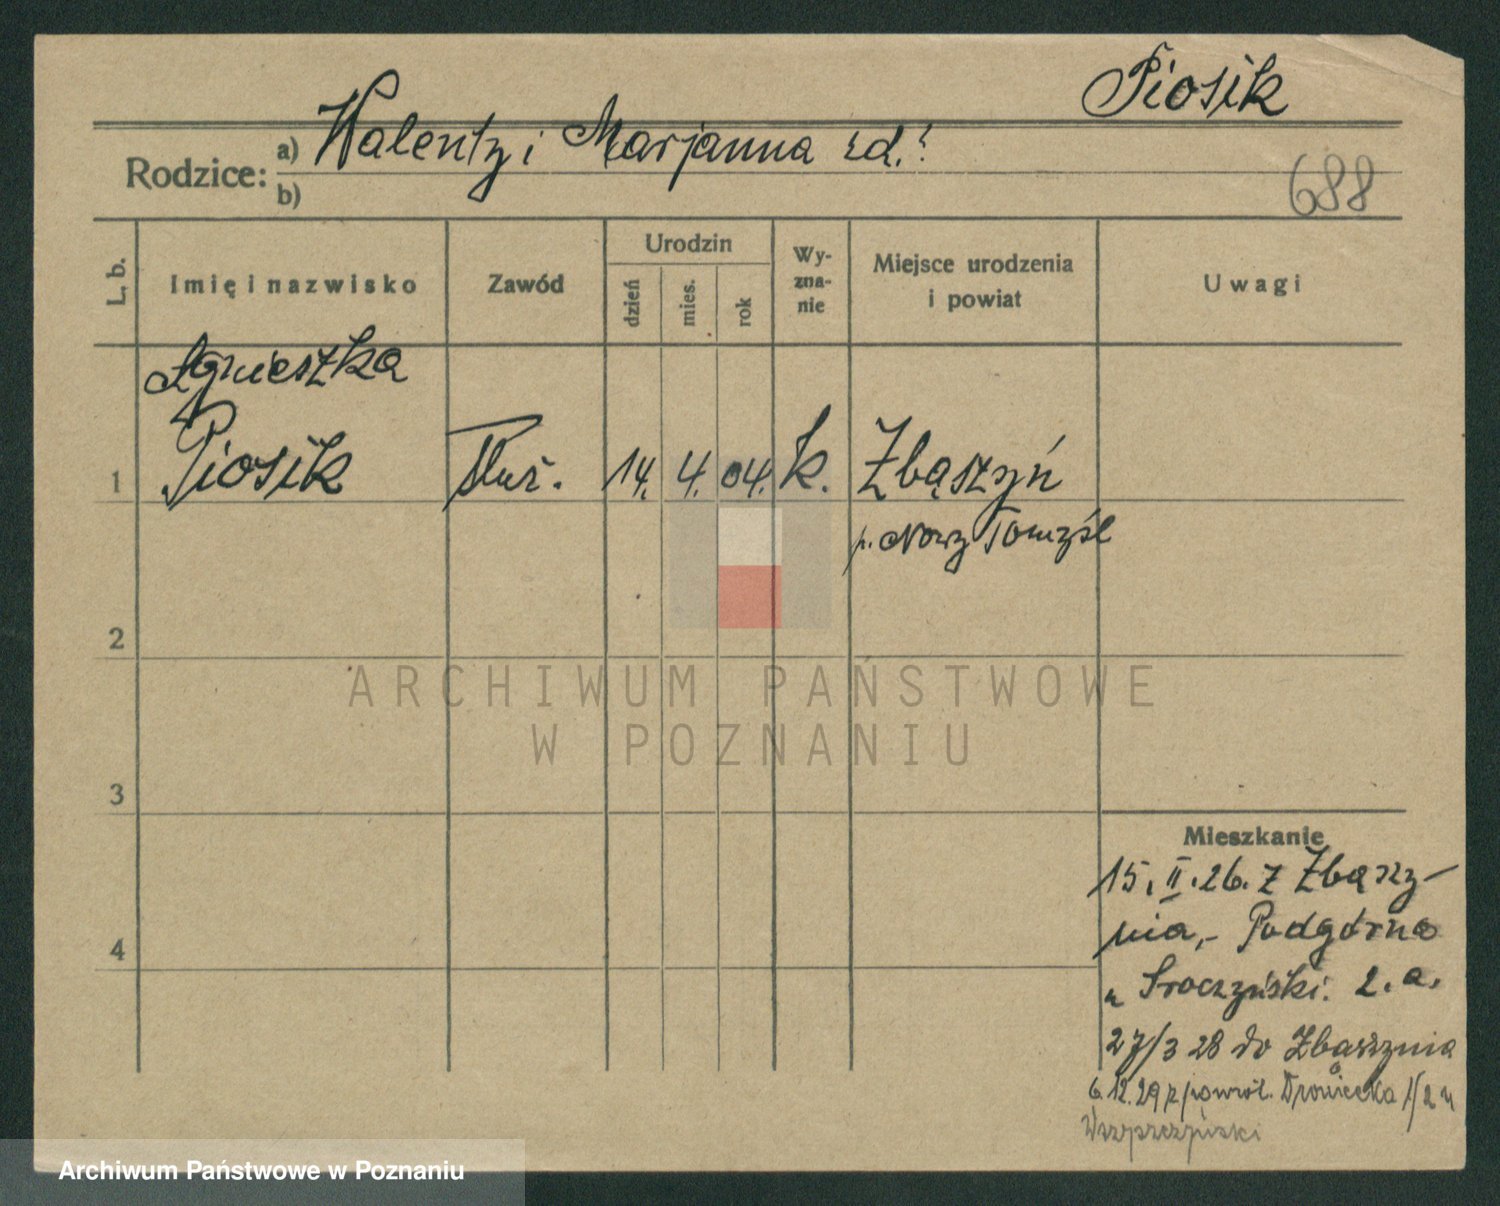 Piosik
Rodzice: a) Walenty i Marjanna zd. ?
b)
688
L. b.
Imię i nazwisko
Zawód
Urodzin
dzień
mies.
rok
Wy-
zna-
nie
Miejsce urodzenia
i powiat
Uwagi
Agnieszka
1 Piosik Służ. 14. 4. 04. k. Zbąszyń
p. Nowy Tomyśl
2
3
4
Mieszkanie
15. II. 26. z Zbąszy-
nia, - Podgórna
u Sroczyński. 2. a.
27/3 28 do Zbąszynia
6.12.29 z powrót.
ARCHIWUM PAŃSTWOWE
W POZNANIU
Archiwum Państwowe w Poznaniu